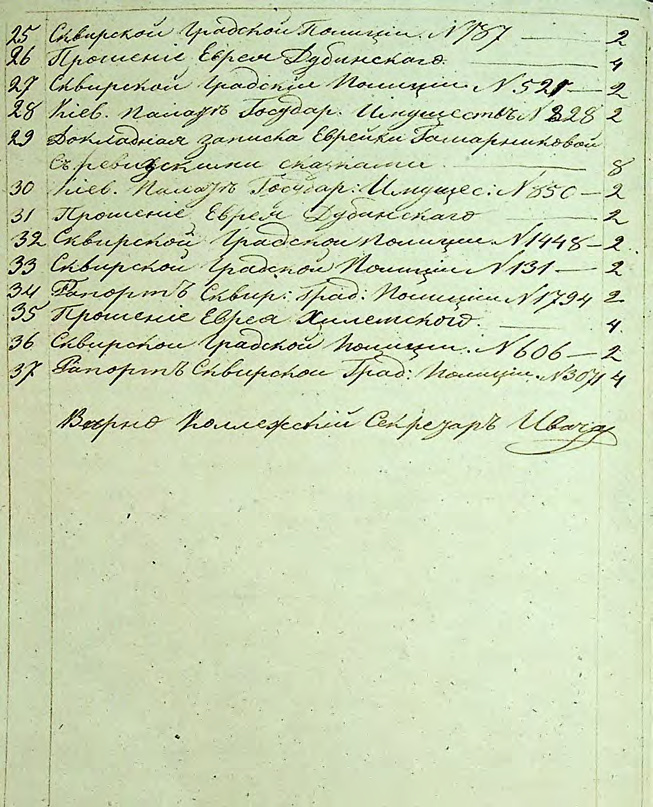 25 Сквирской Градской Полиціи. № 787 — 2
26 Прошеніе Еврея Дубинскаго. — 4
27 Сквирской Градской Полиціи № 521 — 2
28 Кіев. Палатѣ Государ. Имуществъ № 828 2
29 Докладная записка Еврейки Гамарниковой
съ ревизскими сказками — 8
30 Кіев. Палатѣ Государ: Имущес: № 850 — 2
31 Прошеніе Еврея Дубинскаго — 2
32 Сквирской Градской Полиціи № 1448 — 2
33 Сквирской Градской Полиціи № 131 — 2
34 Рапортъ Сквир: Град: Полиціи № 1794 2
35 Прошеніе Еврея Хилемского. — 4
36 Сквирской Градской Полиціи. № 606 — 2
37 Рапортъ Сквирской Град: Полиціи. № 3071 4
Вѣрно Коллежскій Секретаръ